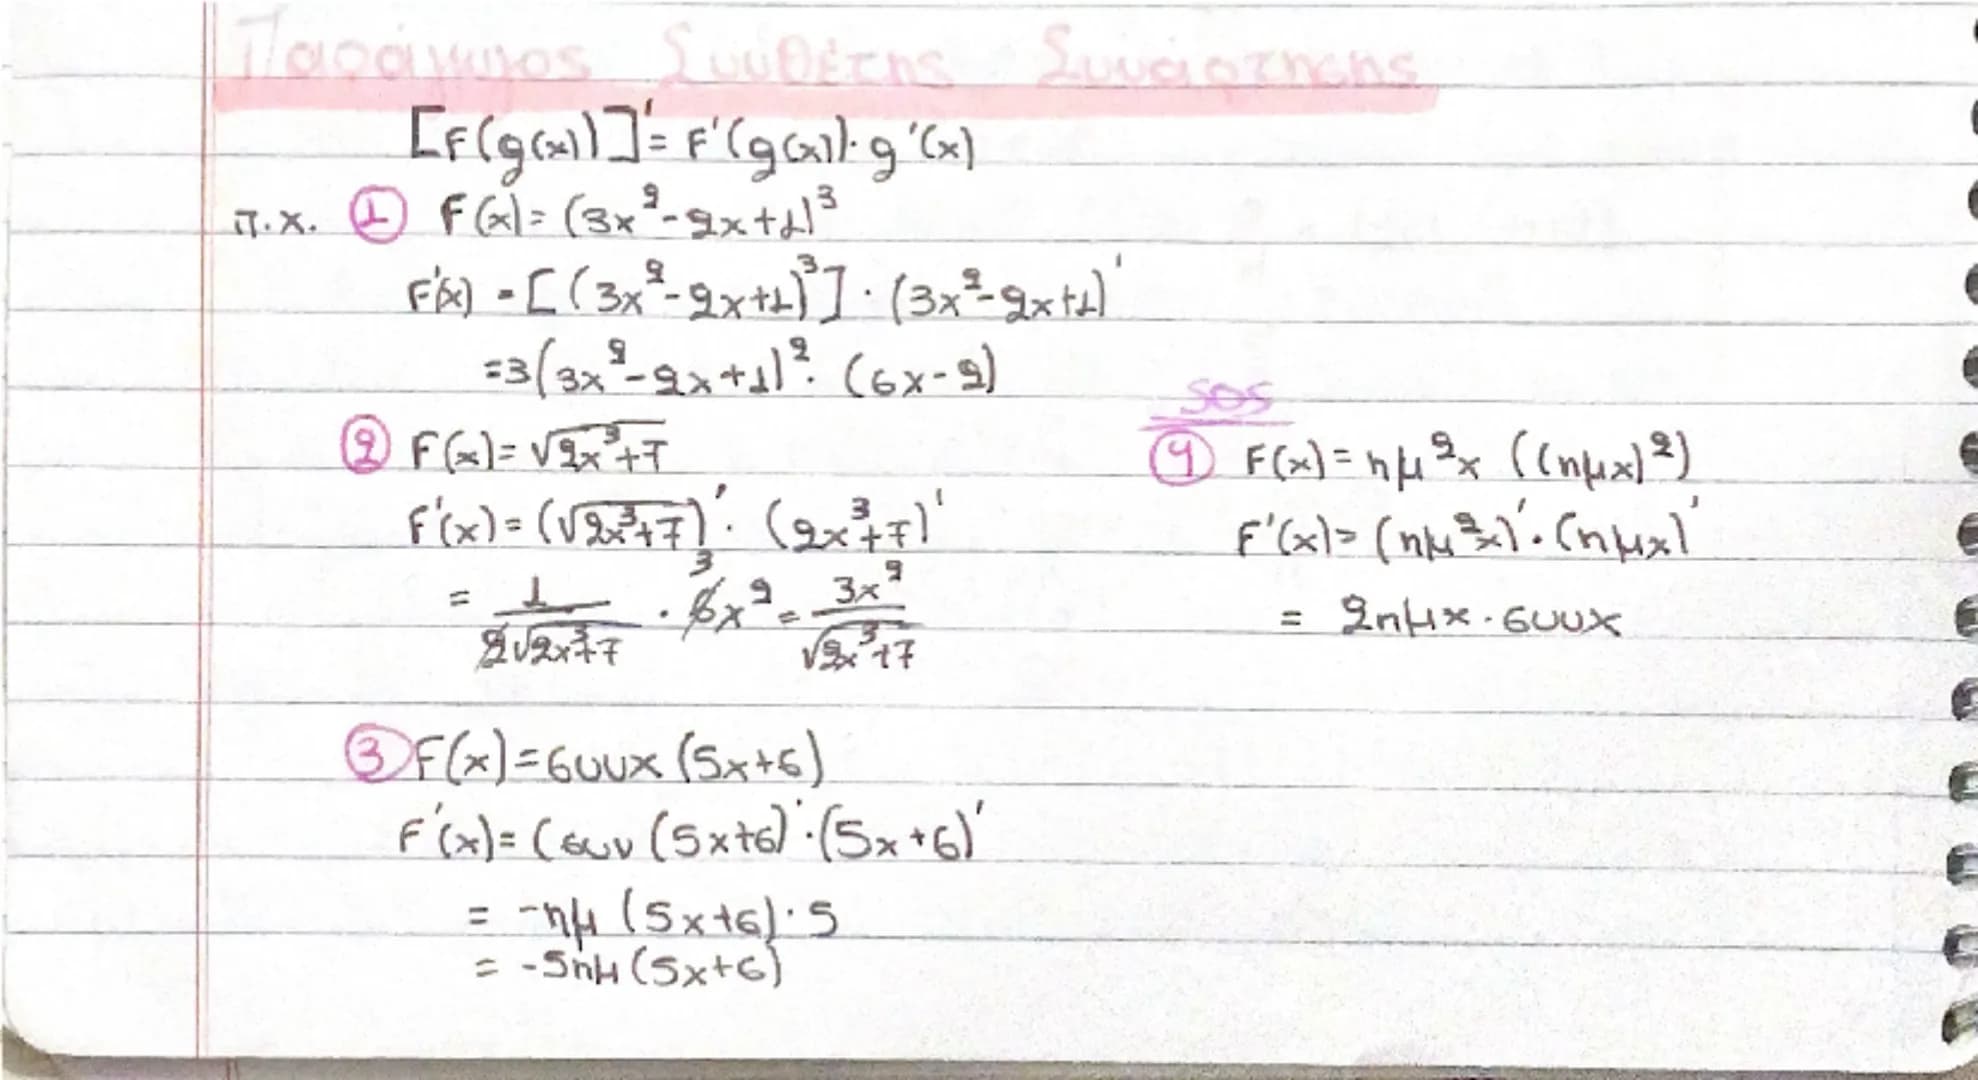 Παράγωγος Σύνθετης Συνάρτησης
[F(g(x))]' = F'(g(x)) · g'(x)
π.χ. ① F(x) = (3x²-2x+1)³
F'(x) = [(3x²-2x+1)³] · (3x²-2x+1)'
=3(3x²-2x+1)² · (6x-2)
② F(x) = √(2x³+7)
F'(x) = (√(2x³+7))' · (2x³+7)'
= 1/(2√(2x³+7)) · 6x² 3 = 3x²/√(2x³+7)
③ F(x) = συνx (5x+6)
F'(x) = (συν (5x+6)' · (5x+6)'
= -ημ (5x+6) · 5
= -5ημ (5x+6)
SOS
④ F(x) = ημ²x ((ημx)²)
F'(x) = (ημ²x)' · (ημx)'
= 2ημx · συνx